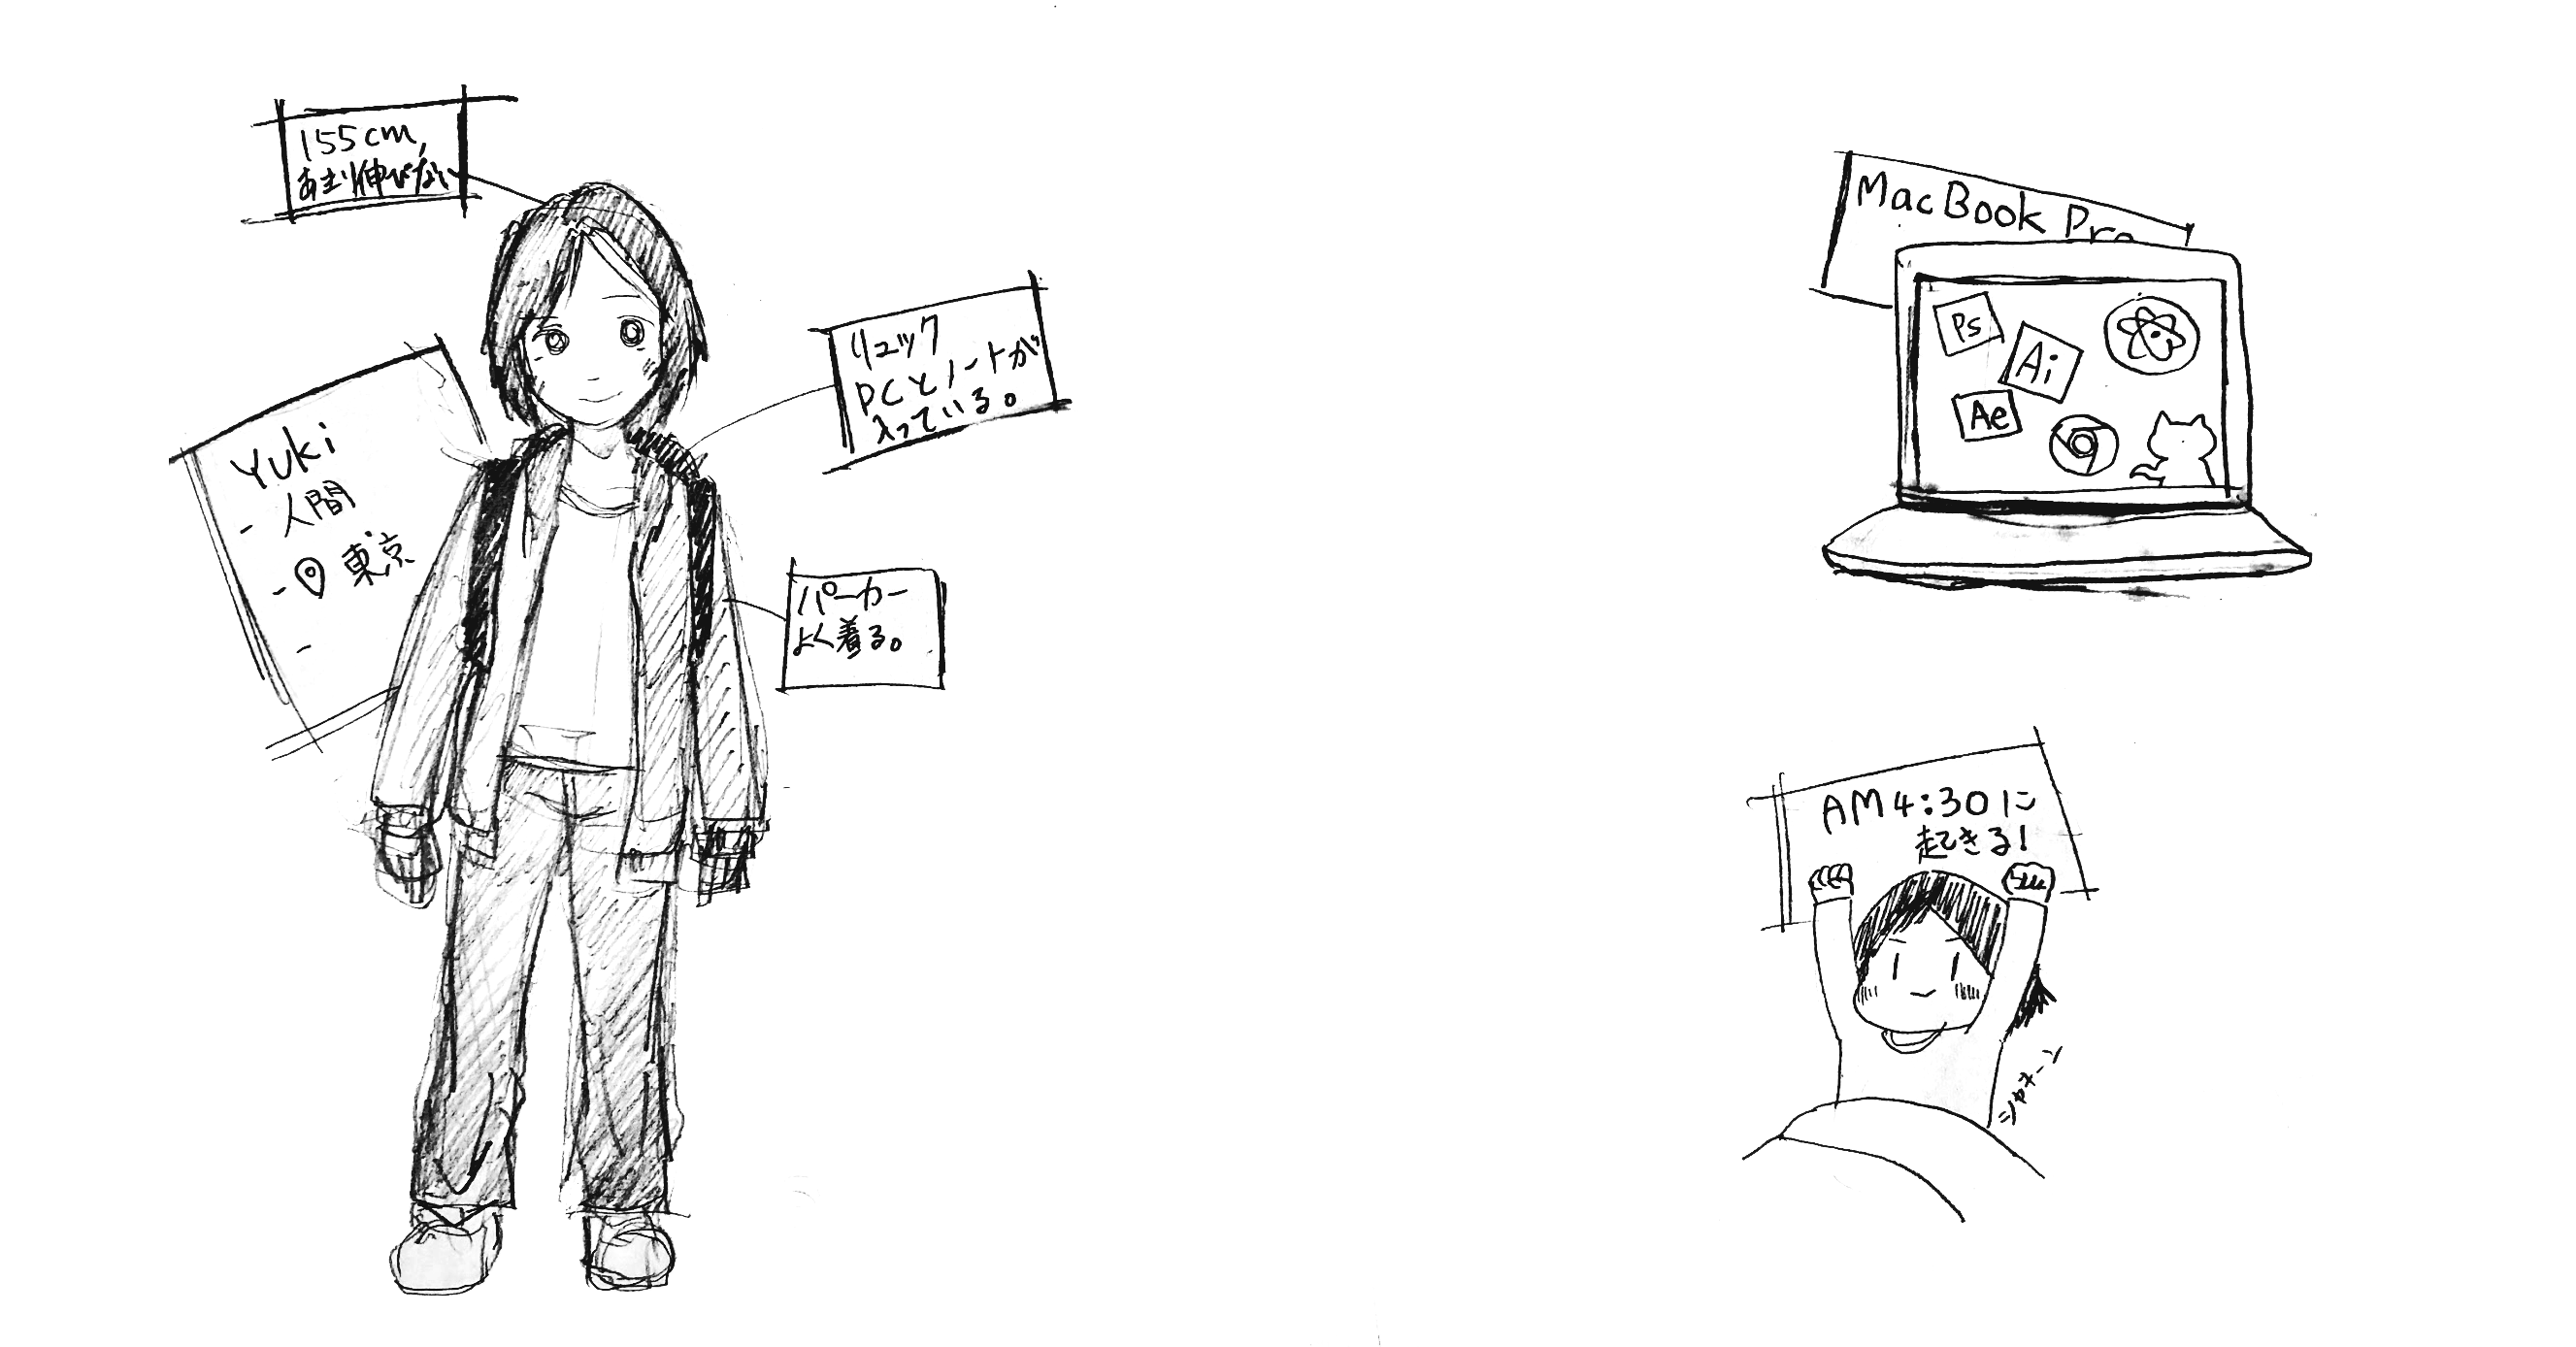 155cm,
あまり伸びない
Yuki
- 人間
- 東京
-
リュック
PCとノートが
入っている。
パーカー
よく着る。
MacBook Pro
Ps
Ai
Ae
AM4:30に
起きる!
シャキーン